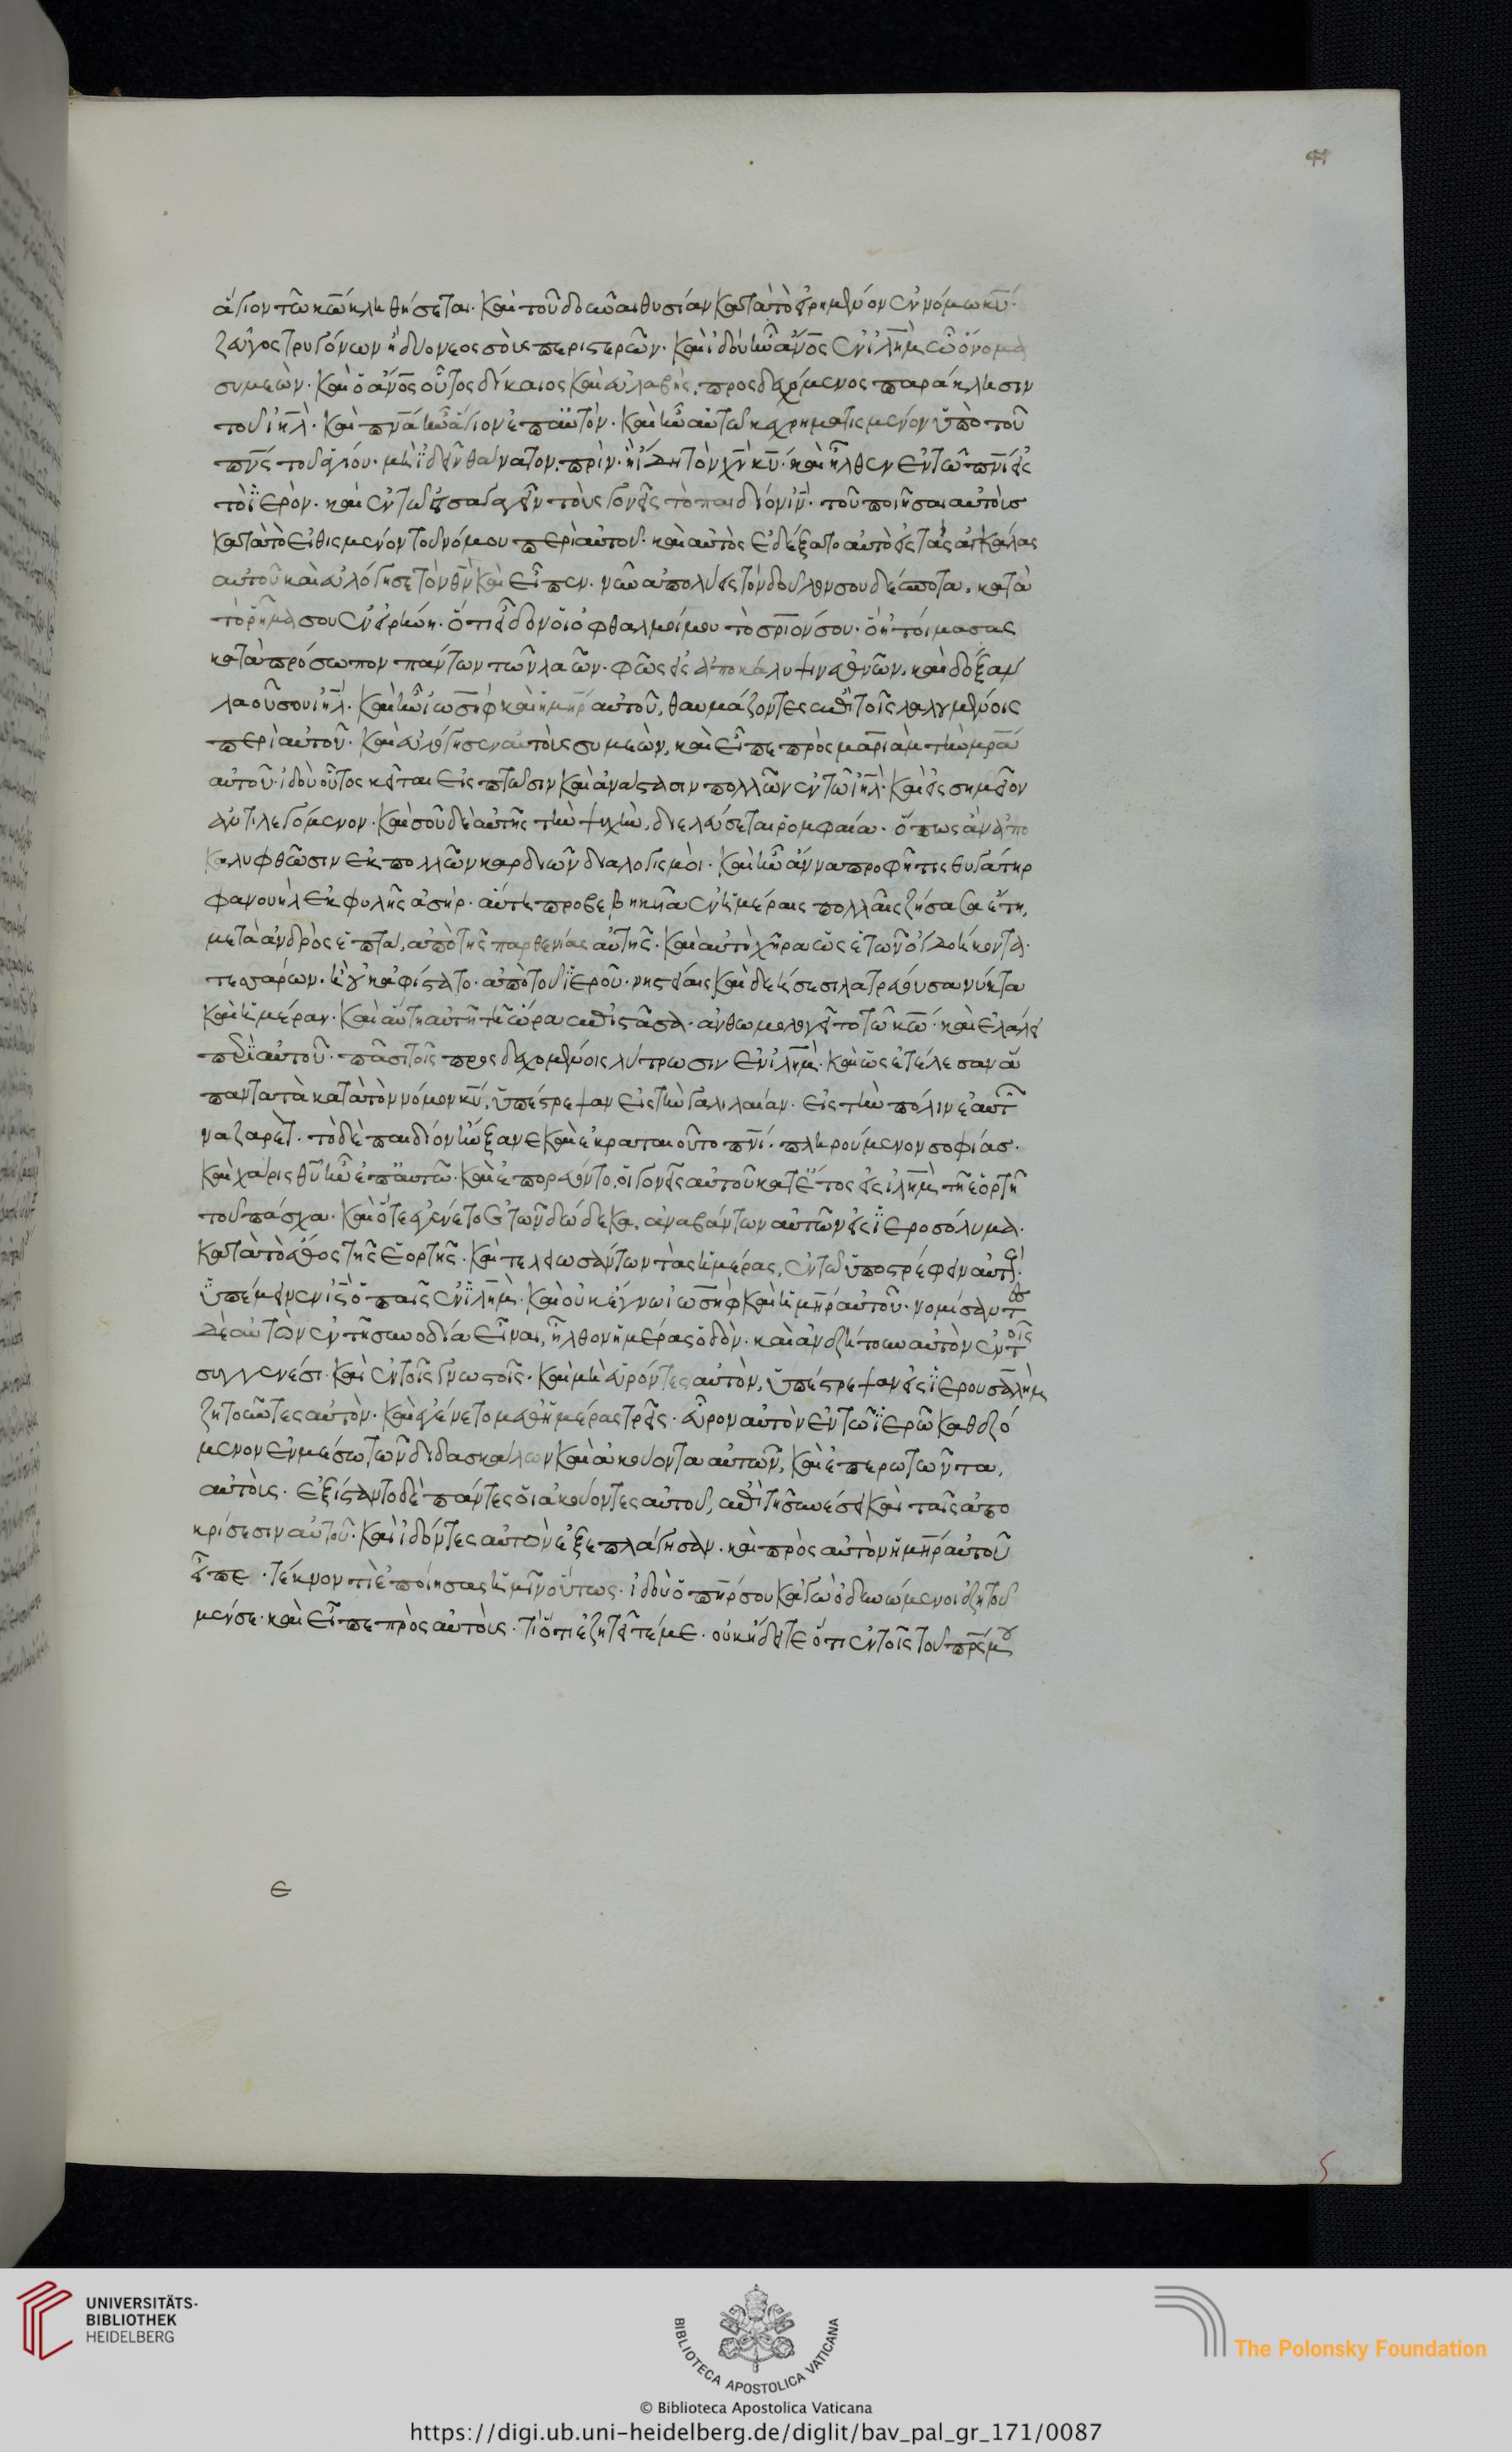 ἅγιον τῶ κω κληθήσεται· καὶ τοῦ δοῦναι θυσίαν κατὰ τὸ εἰρημένον ἐν νόμω κυ·
ζεῦγος τρυγόνων ἢ δύο νεοσσοὺς περιστερῶν· καὶ ἰδοὺ ἦν ἀνος ἐν ἰλημ ὧ ὄνομα
συμεὼν· καὶ ὁ ἀνος οὗτος δίκαιος καὶ εὐλαβὴς, προσδεχόμενος παράκλησιν
τοῦ ἰηλ· καὶ πνα ἦν ἅγιον ἐπ αὐτὸν· καὶ ἦν αὐτῶ κεχρηματισμένον ὑπὸ τοῦ
πνς τοῦ ἁγίου· μὴ ἰδεῖν θάνατον, πρὶν· ἢ ἴδη τὸν χν κυ· καὶ ἦλθεν ἐν τῶ πνι εἰς
τὸ ἱερὸν· καὶ ἐν τῶ εἰσαγαγεῖν τοὺς γονεῖς τὸ παιδίον ιν· τοῦ ποιῆσαι αὐτοὺσ
κατὰ τὸ εἰθισμένον τοῦ νόμου περὶ αὐτοῦ· καὶ αὐτὸς ἐδέξατο αὐτὸ εἰς τὰς ἀγκάλας
αὐτοῦ καὶ εὐλόγησε τὸν θν καὶ εἶπεν· νῦν ἀπολύεις τὸν δοῦλόν σου δέσποτα, κατὰ
τὸ ῥῆμά σου ἐν εἰρήνη· ὅτι εἶδον οἱ ὀφθαλμοί μου τὸ σριόν σου· ὃ ἡτοίμασας
κατὰ πρόσωπον πάντων τῶν λαῶν· φῶς εἰς ἀποκάλυψιν ἐθνῶν, καὶ δόξαν
λαοῦ σου ιηλ· καὶ ἦν ἰωσὴφ καὶ ἡ μηρ αὐτοῦ, θαυμάζοντες ἐπὶ τοῖς λαλουμένοις
περὶ αὐτοῦ· καὶ εὐλόγησεν αὐτοὺς συμεὼν, καὶ εἶπε πρὸς μαριὰμ τὴν μρα
αὐτοῦ· ἰδοὺ οὗτος κεῖται εἰς πτῶσιν καὶ ἀνάστασιν πολλῶν ἐν τῶ ιηλ· καὶ εἰς σημεῖον
ἀντιλεγόμενον· καὶ σοῦ δὲ αὐτῆς τὴν ψυχὴν, διελεύσεται ῥομφαία· ὅπως ἂν ἀπο
καλυφθῶσιν ἐκ πολλῶν καρδιῶν διαλογισμοί· καὶ ἦν ἄννα προφῆτις θυγάτηρ
φανουὴλ ἐκ φυλῆς ἀσήρ· αὕτη προβεβηκυῖα ἐν ἡμέραις πολλαῖς ζήσασα ἔτη,
μετὰ ἀνδρὸς ἑπτὰ, ἀπὸ τῆς παρθενίας αὐτῆς· καὶ αὐτὴ χῆρα ὡς ἐτῶν ὀγδοήκοντα·
τεσσάρων· ἣ οὐκ ἀφίστατο· ἀπὸ τοῦ ἱεροῦ· νηστείαις καὶ δεήσεσι λατρεύουσα νύκτα
καὶ ἡμέραν· καὶ αὕτη αὐτῆ τῆ ὥρα ἐπιστᾶσα· ἀνθωμολογεῖτο τῶ κω· καὶ ἐλάλει
περὶ αὐτοῦ· πᾶσι τοῖς προσδεχομένοις λύτρωσιν ἐν ἰλημ· καὶ ὡς ἐτέλεσαν ἅ
παντα τὰ κατὰ τὸν νόμον κυ, ὑπέστρεψαν εἰς τὴν γαλιλαίαν· εἰς τὴν πόλιν ἑαυτῶν
ναζαρέτ· τὸ δὲ παιδίον ηὔξανε καὶ ἐκραταιοῦτο πνι· πληρούμενον σοφίασ·
καὶ χάρις θυ ἦν ἐπ αυτῶ· καὶ ἐπορεύοντο, οἱ γονεῖς αὐτοῦ κατ ἔτος εἰς ιλημ τῆ ἑορτῆ
τοῦ πάσχα· καὶ ὅτε ἐγένετο ἐτῶν δώδεκα, ἀναβάντων αὐτῶν εἰς ἱεροσόλυμα·
κατὰ τὸ ἔθος τῆς ἑορτῆς· καὶ τελειωσάντων τὰς ἡμέρας, ἐν τῶ ὑποστρέφειν αὐτούς·
ὑπέμεινεν ις ὁ παῖς ἐν ιλημ· καὶ οὐκ ἔγνω ἰωσὴφ καὶ ἡ μηρ αὐτοῦ· νομίσαντες
δὲ αὐτὸν ἐν τῆ συνοδία εἶναι, ἦλθον ἡμέρας ὁδὸν· καὶ ἀνεζήτουν αὐτὸν ἐν τοῖς
συγγενέσι καὶ ἐν τοῖς γνωστοῖς· καὶ μὴ εὑρόντες αὐτὸν, ὑπέστρεψαν εἰς ἱερουσαλὴμ
ζητοῦντες αὐτὸν· καὶ ἐγένετο μεθ ἡμέρας τρεῖς· εὗρον αὐτὸν ἐν τῶ ἱερῶ καθεζό
μενον ἐν μέσω τῶν διδασκάλων καὶ ἀκούοντα αὐτῶν, καὶ ἐπερωτῶντα,
αὐτοὺς· ἐξίσταντο δὲ πάντες οἱ ἀκούοντες αὐτοῦ, ἐπὶ τῆ συνέσει καὶ ταῖς ἀπο
κρίσεσιν αὐτοῦ· καὶ ἰδόντες αὐτὸν ἐξεπλάγησαν· καὶ πρὸς αὐτὸν ἡ μηρ αὐτοῦ
εἶπε· τέκνον τί ἐποίησας ἡμῖν οὕτως· ἰδοὺ ὁ πηρ σου κἀγὼ ὀδυνώμενοι ἐζητοῦ
μέν σε· καὶ εἶπε πρὸς αὐτοὺς· τί ὅτι ἐζητεῖτέ με· οὐκ ἤδειτε ὅτι ἐν τοῖς τοῦ πρς μου
ε
UNIVERSITÄTS-
BIBLIOTHEK
HEIDELBERG
BIBLIOTECA APOSTOLICA VATICANA
The Polonsky Foundation
© Biblioteca Apostolica Vaticana
https://digi.ub.uni-heidelberg.de/diglit/bav_pal_gr_171/0087